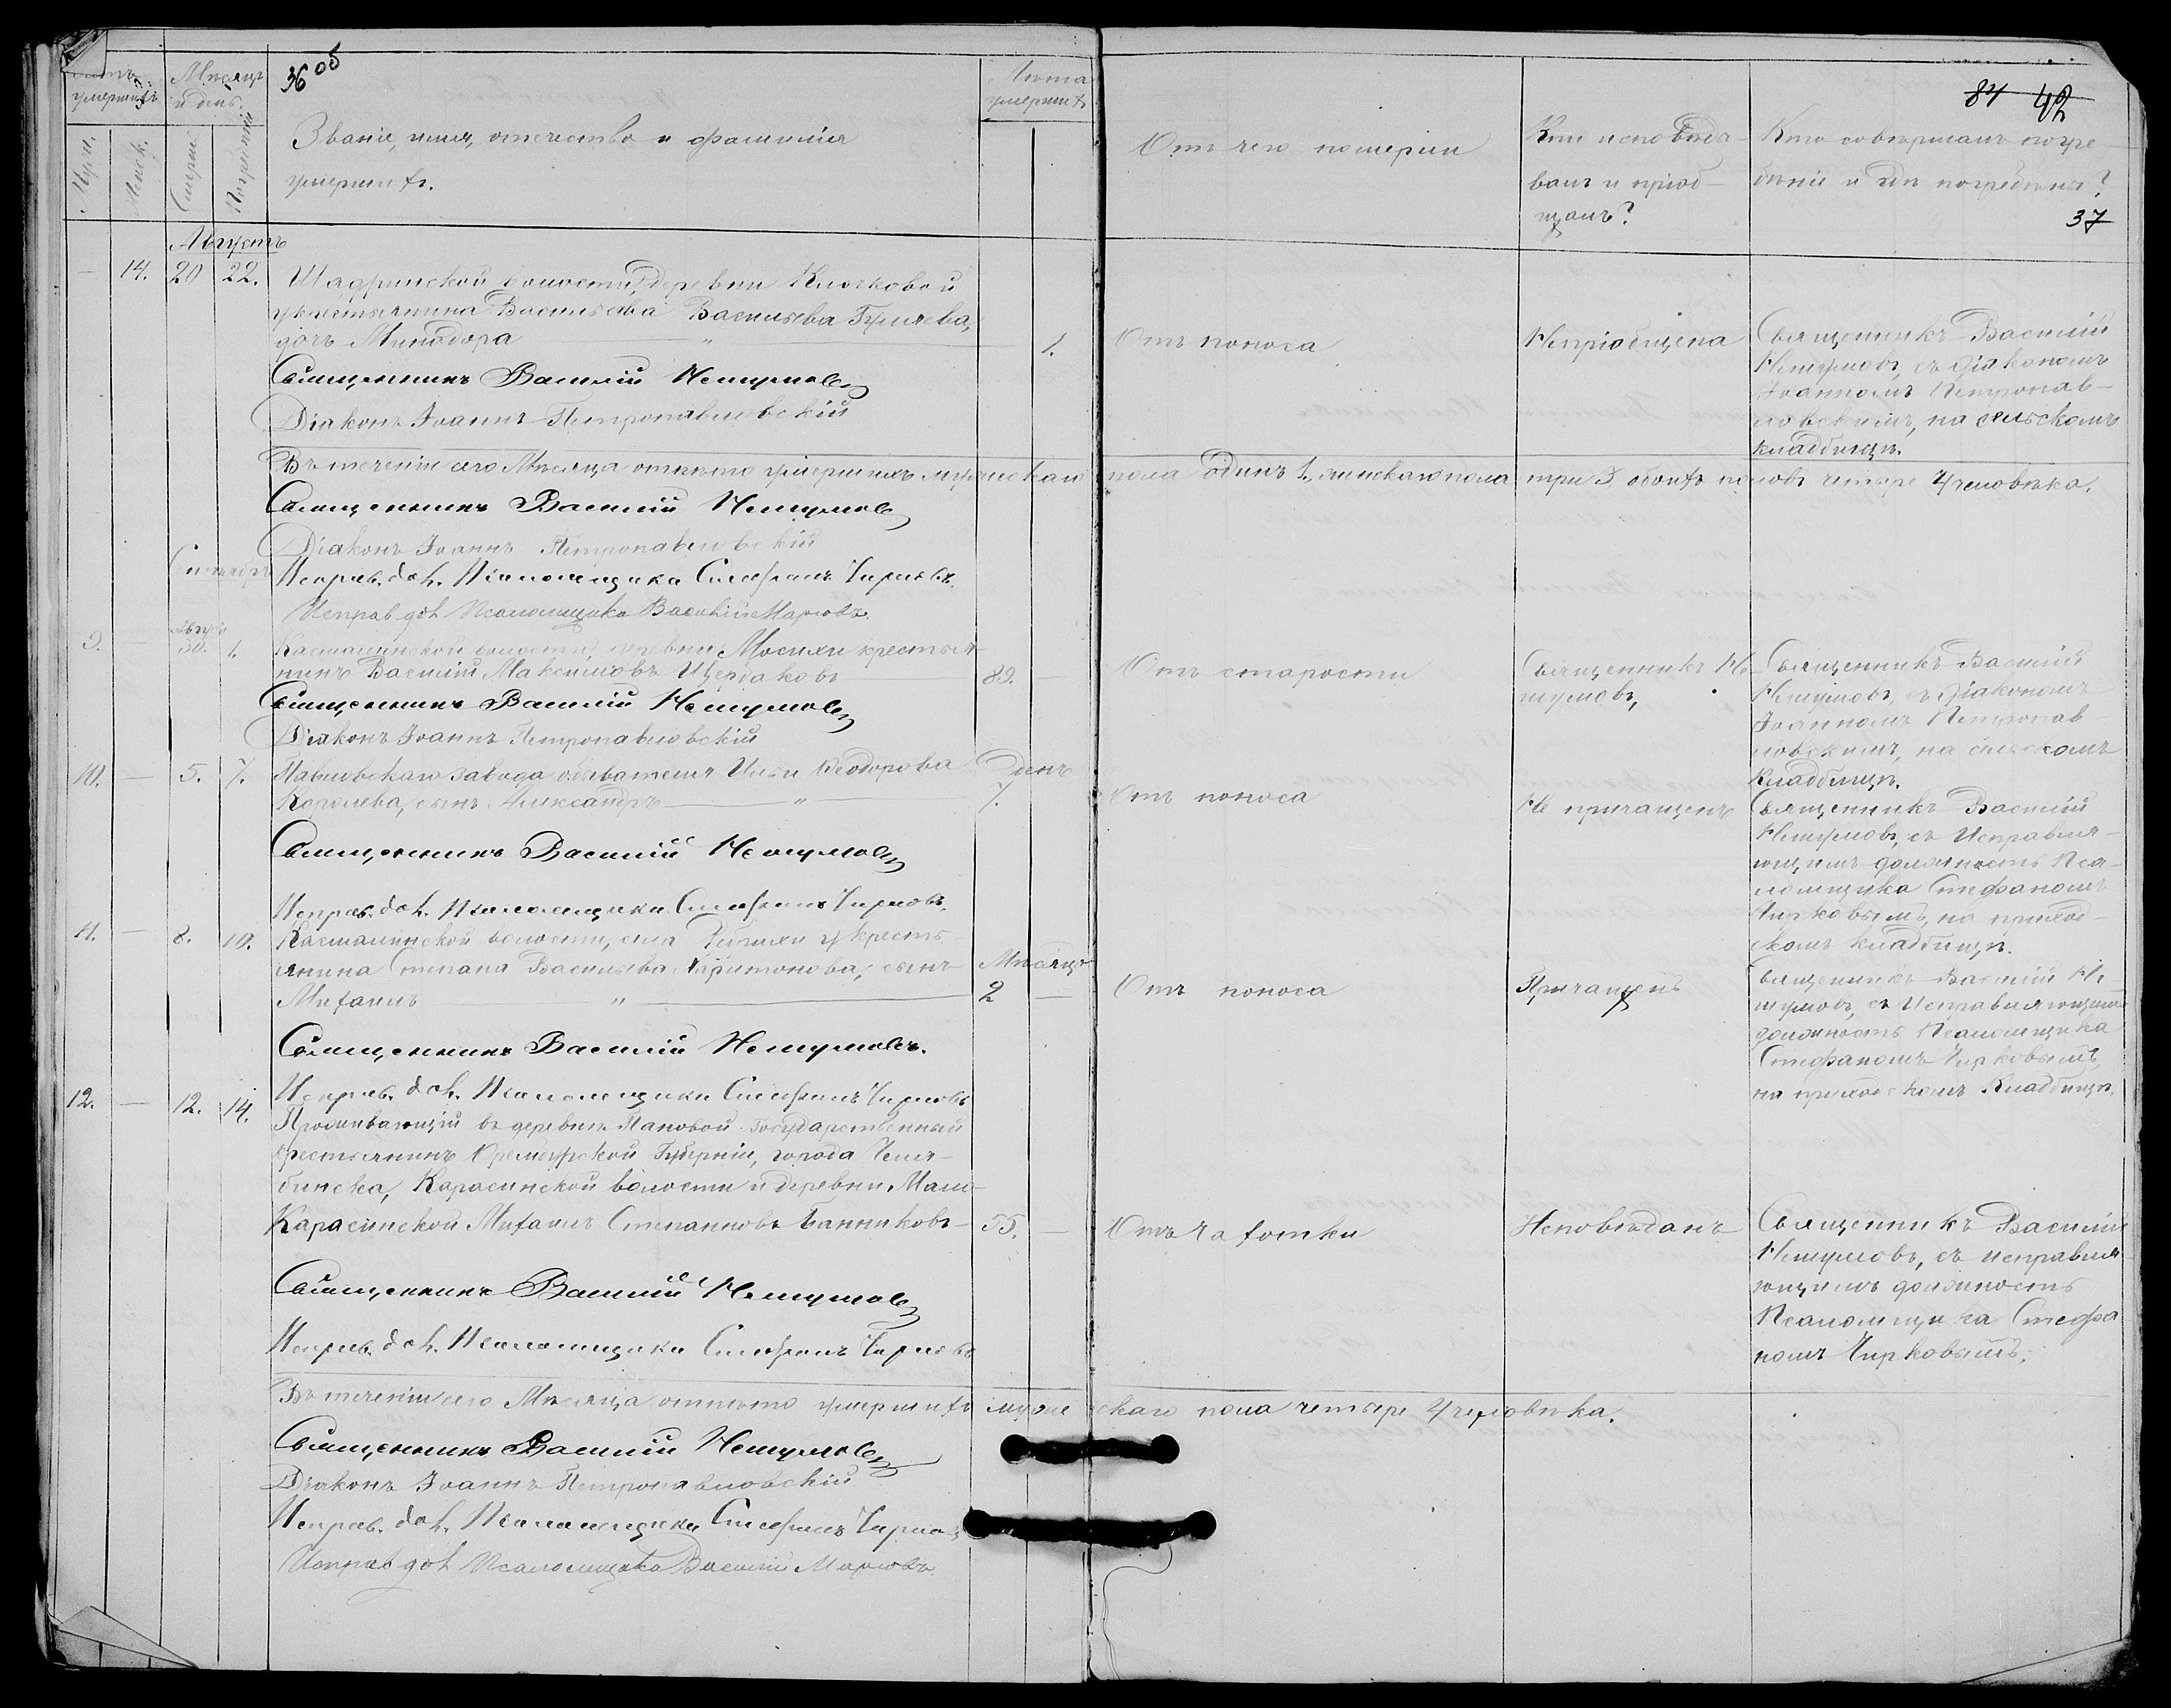 36 об
84 42
37
Счетъ умершихъ
Мѣсяцъ и день.
Муж.
Женск.
Смерти.
Погребенія
Званіе, имя, отчество и фамилія
умершихъ.
Лѣта
умершихъ
Отъ чего померли
Кто исповѣды-
валъ и пріоб-
щалъ?
Кто совершалъ погре-
беніе и гдѣ погребены?
Августъ
— 14. 20 22. Шадринской волости, деревни Клочковой
у крестьянина Васильева
дочь Минадора — " — 1.
Отъ поноса
Непріобщена
Священникъ Василій
Нешумовъ, съ Діакономъ
Іоанномъ Петропав-
ловскимъ, на сельскомъ
кладбищѣ.
Священникъ Василій Нешумовъ
Діаконъ Іоаннъ Петропавловскій
Въ теченіи сего Мѣсяца отпѣто умершихъ мужескаго пола одинъ 1, женскаго пола три 3 обоихъ половъ четыре 4 человѣка.
Священникъ Василій Нешумовъ
Діаконъ Іоаннъ Петропавловскій
Сентябрь
Исправ. дол. Псаломщика Стефанъ Чирковъ.
Исправ дол Псаломщика Василій
9. — Август 30. 1. Касмалинской волости, деревни Мосихи крестья-
нинъ Василій Максимовъ Щербаковъ 89. —
Отъ старости
Священникъ Не-
шумовъ,
Священникъ Василій
Нешумовъ, съ Діакономъ
Іоанномъ Петропав-
ловскимъ, на сельскомъ
кладбищѣ.
Священникъ Василій Нешумовъ
Діаконъ Іоаннъ Петропавловскій
10. — 5. 7. Павловскаго завода обывателя Ильи Ѳеодорова
Королева, сынъ Александръ — " —
Дней
7.
Отъ поноса
Не причащенъ
Священникъ Василій
Нешумовъ, съ Исправля-
ющимъ должность Пса-
ломщика Стефаномъ
Чирковымъ, на приход-
скомъ кладбищѣ.
Священникъ Василій Нешумовъ
Исправ. дол. Псаломщика Стефанъ Чирковъ.
11. — 8. 10. Касмалинской волости, села Ребрихи у кресть-
янина Степана Васильева Харитонова, сынъ
Михаилъ — " —
Мѣсяцъ
2 —
Отъ поноса
Причащенъ
Священникъ Василій Не-
шумовъ, съ Исправляющимъ
должность Псаломщика
Стефаномъ Чирковымъ,
на приходскомъ Кладбищѣ.
Священникъ Василій Нешумовъ.
Исправ. дол. Псаломщика Стефанъ Чирковъ
12. — 12. 14. Проживающій въ деревнѣ Пановой Государственный
крестьянинъ Оренбургской Губерніи, города Челя-
бинска, Карасинской волости и деревни Мало-
Карасинской Михаилъ Степановъ Банниковъ 55. —
Отъ чахотки
Исповѣданъ
Священникъ Василій
Нешумовъ, съ исправля-
ющимъ должность
Псаломщика Стефа
номъ Чирковымъ,
Священникъ Василій Нешумовъ
Исправ. дол. Псаломщика Стефанъ Чирковъ
Въ теченіи сего Мѣсяца отпѣто умершихъ мужескаго пола четыре 4 человѣка.
Священникъ Василій Нешумовъ
Діаконъ Іоаннъ Петропавловскій
Исправ. дол. Псаломщика Стефанъ Чирковъ
Исправ дол Псаломщика Василій